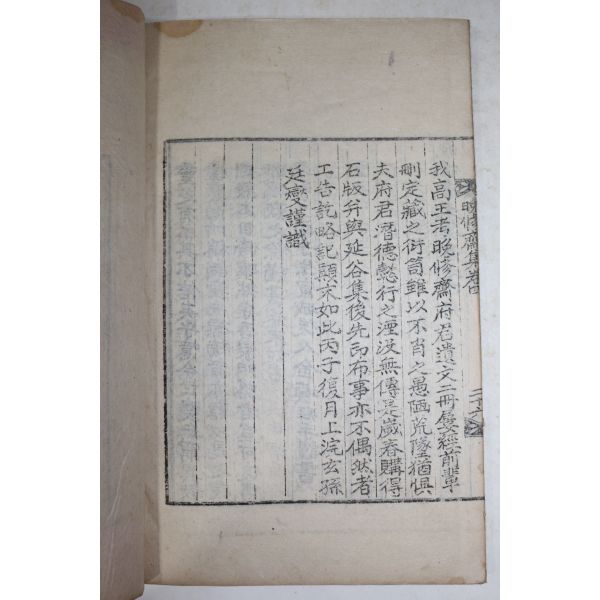 晚修齋集卷四
二十六
我高王考晚修齋府君遺文二冊屢經前輩
刪定藏之衍笥雖以不肖之愚陋荒墜猶懼
夫府君潛德懿行之湮沒無傳是歲春購得
石版幷與延谷集後先印布事亦不偶然者
工告訖略記顚末如此丙子復月上浣玄孫
廷燮謹識